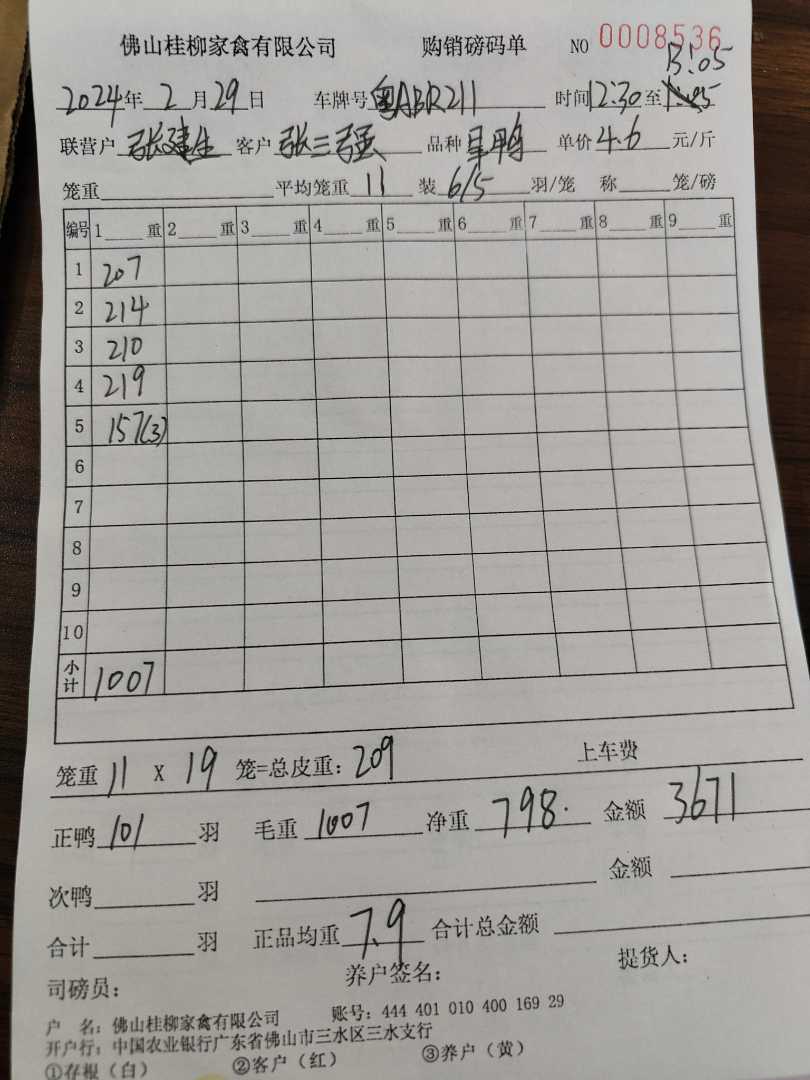 佛山桂柳家禽有限公司 购销磅码单 NO 0008536
13:05
2024年 2 月 29 日 车牌号 粤ABR211 时间 12:30 至
联营户 张建生 客户 张三强 品种 旱鸭 单价 4.6 元/斤
笼重 平均笼重 11 装 6/5 羽/笼 称 笼/磅
编号 1 重 2 重 3 重 4 重 5 重 6 重 7 重 8 重 9 重
1 207
2 214
3 210
4 219
5 157(3)
6
7
8
9
10
小计 1007
笼重 11 X 19 笼=总皮重: 209 上车费
正鸭 101 羽 毛重 1007 净重 798. 金额 3671
次鸭 羽 金额
合计 羽 正品均重 7.9 合计总金额
司磅员: 养户签名: 提货人:
户 名: 佛山桂柳家禽有限公司 账号: 444 401 010 400 169 29
开户行: 中国农业银行广东省佛山市三水区三水支行
①存根（白） ②客户（红） ③养户（黄）